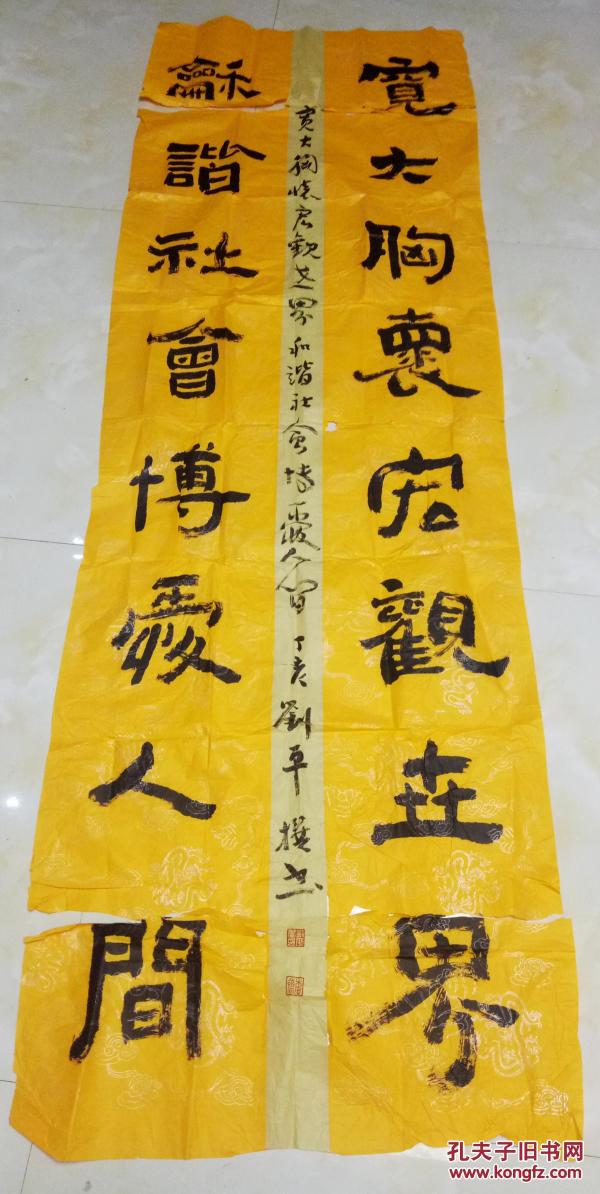 寬大胸褱宏觀世界
寬大胸懷宏觀世界和谐社会博愛人间丁亥劉平撰书
龢諧社會博愛人間
孔夫子旧书网
www.kongfz.com